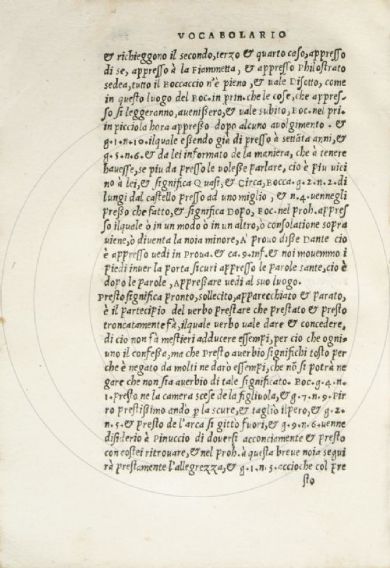 VOCABOLARIO
& richieggono il secondo, terzo & quarto ceso, appresso
di se, appresso à la Fiammetta, & appresso Philostrato
sedea, tutto il Boccaccio n'è pieno, & uale Disotto, come
in questo luogo del Boc. in prin. che le cose, che appres-
so si leggeranno, auenissero, & uale subito, Boc. nel pri.
in picciola hora appresso dopo alcuno auolgimento. &
g. 1. n. 10. ilquale essendo già di presso à settāta anni, &
g. 5. n. 6. & da lei informato de la maniera, che à tenere
hauesse, se piu da presso le uolesse parlare, cio è piu uici
no à lei, & significa Quasi, & Circa, Bocca. g. 2. n. 2. di
lungi dal castello presso ad uno miglio, & n. 4. uennegli
presso che fatto, & significa DOPO, Boc. nel proh. appres
so ilquale ò in un modo ò in un altro, ò consolatione sopra
uiene, ò diuenta la noia minore, A' prouo disse Dante cio
è appresso uedi in Proua. & ca. 9. inf. & noi mouemmo i
piedi inuer la porta sicuri appresso le parole sante, cio è
dopo le parole, Appressare uedi al suo luogo.
Presto significa pronto, sollecito, apparecchiato & parato,
è il partecipio del uerbo prestare che prestato & presto
troncatamente fà, ilquale uerbo uale dare & concedere,
di cio non fà mestieri adducere essempi, per cio che ogni-
uno il confessa, ma che Presto auerbio significhi tosto per
che è negato da molti ne darò essempi, che nō si potrà ne
gare che non sia auerbio di tale significato. Boc. g. 4. n.
1. Presso ne la camera scese de la figliuola, & g. 7. n. 9. Pir
ro prestissimo andò per la scure, & tagliò il pero, & g. 2.
n. 5. & presto de l'arca si gittò fuori, & g. 9. n. 6. uenne
disiderio à Pinuccio di douersi acconciamente & presto
con costei ritrouare, & nel proh. à questa breue noia segui
rà prestamente l'allegrezza, & g. 1. n. 5. accioche col pre
sto